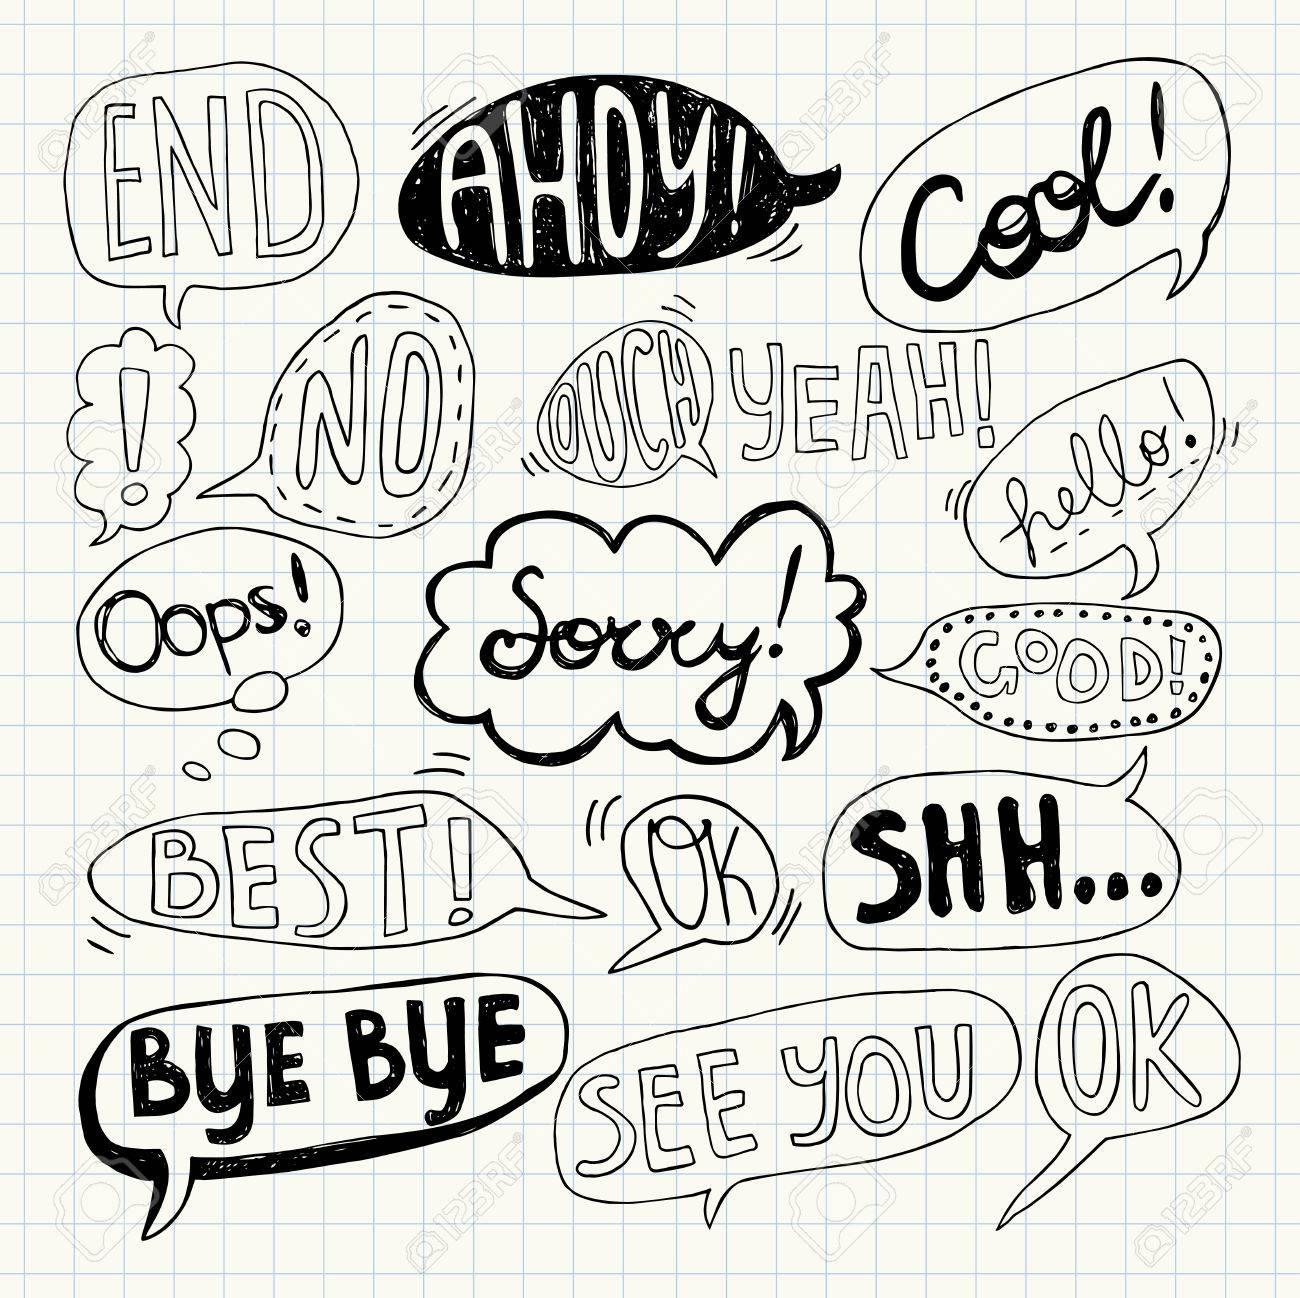 END
AHOY!
Cool!
!
NO
OUCH
YEAH!
hello!
Oops!
Sorry!
GOOD!
BEST!
OK
SHH...
BYE BYE
SEE YOU
OK
123RF